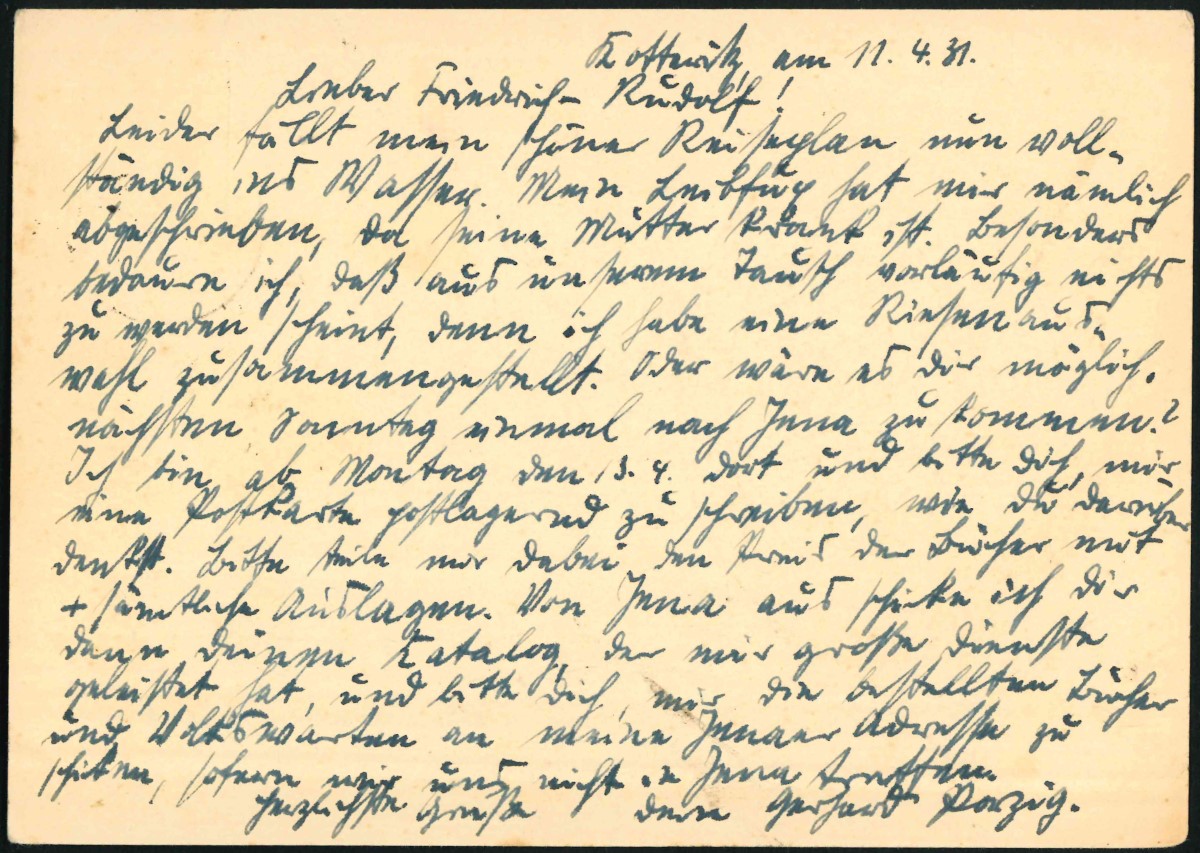 Kotteritz, am 11. 4. 31.
Lieber Friedrich-Rudolf!
Leider fällt mein schöner Reiseplan nun voll-
ständig ins Wasser. Mein Leibfux hat mir nämlich
abgeschrieben, da seine Mutter krank ist. Besonders
bedaure ich, daß aus unserem Tausch vorläufig nichts
zu werden scheint, denn ich habe eine Riesenaus-
wahl zusammengestellt. Oder wäre es dir möglich,
nächsten Sonntag einmal nach Jena zu kommen?
Ich bin ab Montag den 13. 4. dort und bitte dich, mir
eine Postkarte postlagernd zu schreiben, wie du darüber
denkst. Bitte teile mir dabei den Preis der Bücher mit
+ sämtliche Auslagen. Von Jena aus schicke ich dir
dann deinen Katalog, der mir große Dienste
geleistet hat, und bitte dich, mir die bestellten Bücher
und Volkswarten an meine Jenaer Adresse zu
schicken, sofern wir uns nicht in Jena treffen.
Herzlichste Grüße dein Gerhard Porzig.